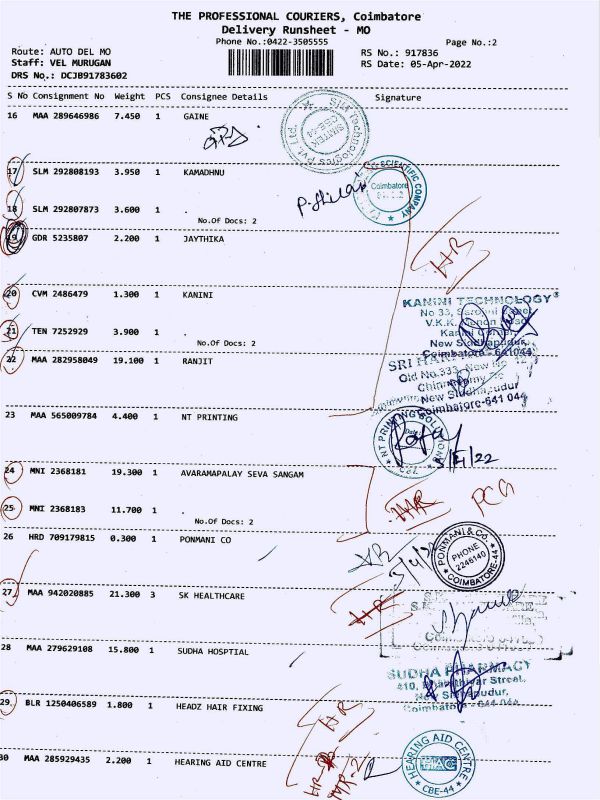 THE PROFESSIONAL COURIERS, Coimbatore
Delivery Runsheet - MO
Phone No.:0422-3505555
Page No.:2
Route: AUTO DEL MO
RS No.: 917836
Staff: VEL MURUGAN
RS Date: 05-Apr-2022
DRS No.: DCJB91783602
S No Consignment No Weight PCS Consignee Details Signature
16 MAA 289646986 7.450 1 GAINE
17 SLM 292808193 3.950 1 KAMADHNU
SCIENTIFIC COMPANY
Coimbatore
18 SLM 292807873 3.600 1
No.Of Docs: 2
19 GDR 5235807 2.200 1 JAYTHIKA
HR
20 CVM 2486479 1.300 1 KANINI
KANINI TECHNOLOGY
No 33, Sarojini Street,
V.K.K. Menon Road
21 TEN 7252929 3.900 1
No.Of Docs: 2
New Siddhapudur,
Coimbatore - 641044
22 MAA 282958049 19.100 1 RANJIT
Old No.333, New No
New Siddhapudur
Coimbatore-641 044
23 MAA 565009784 4.400 1 NT PRINTING
NT PRINTING SOLUTIONS
CBE
5/4/22
24 MNI 2368181 19.300 1 AVARAMAPALAY SEVA SANGAM
HR
25 MNI 2368183 11.700 1
No.Of Docs: 2
26 HRD 709179815 0.300 1 PONMANI CO
PONMANI & CO.
PHONE
2246140
COIMBATORE-44
27 MAA 942020885 21.300 3 SK HEALTHCARE
HR
28 MAA 279629108 15.800 1 SUDHA HOSPTIAL
SUDHA PHARMACY
410, Bharathiyar Street,
New Siddhapudur,
Coimbatore - 641 044
29 BLR 1250406589 1.800 1 HEADZ HAIR FIXING
HR
30 MAA 285929435 2.200 1 HEARING AID CENTRE
HEARING AID CENTRE
HAC
CBE-44